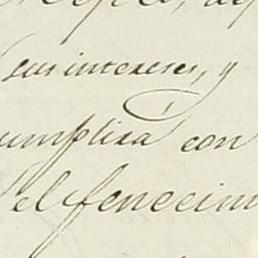 sus intereses, y
umplirá con
el fenecim